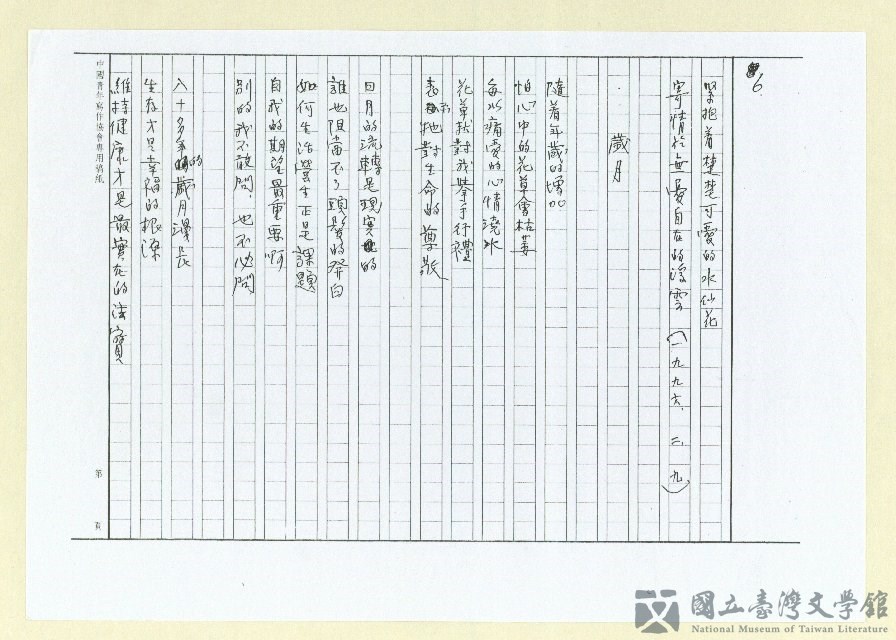 6.
緊抱着楚楚可愛的水仙花
寄情於無憂自在的浮雲（一九九六、二、九）
歲月
隨着年歲的增
怕心中的花草會枯萎
每次痛愛的心情澆水
花草就對我舉手行禮
表示她對生命的尊敬
日月的流轉是現實的
誰也阻當不了頭髮的發白
如何生活營生正是課題
自我的期望最重要啊
別的我不敢問，也不必問
八十多年的歲月漫長
生存才是幸福的根源
維持健康才是最實在的法寶
中國青年寫作協會專用稿紙
第 頁
國立臺灣文學館
National Museum of Taiwan Literature